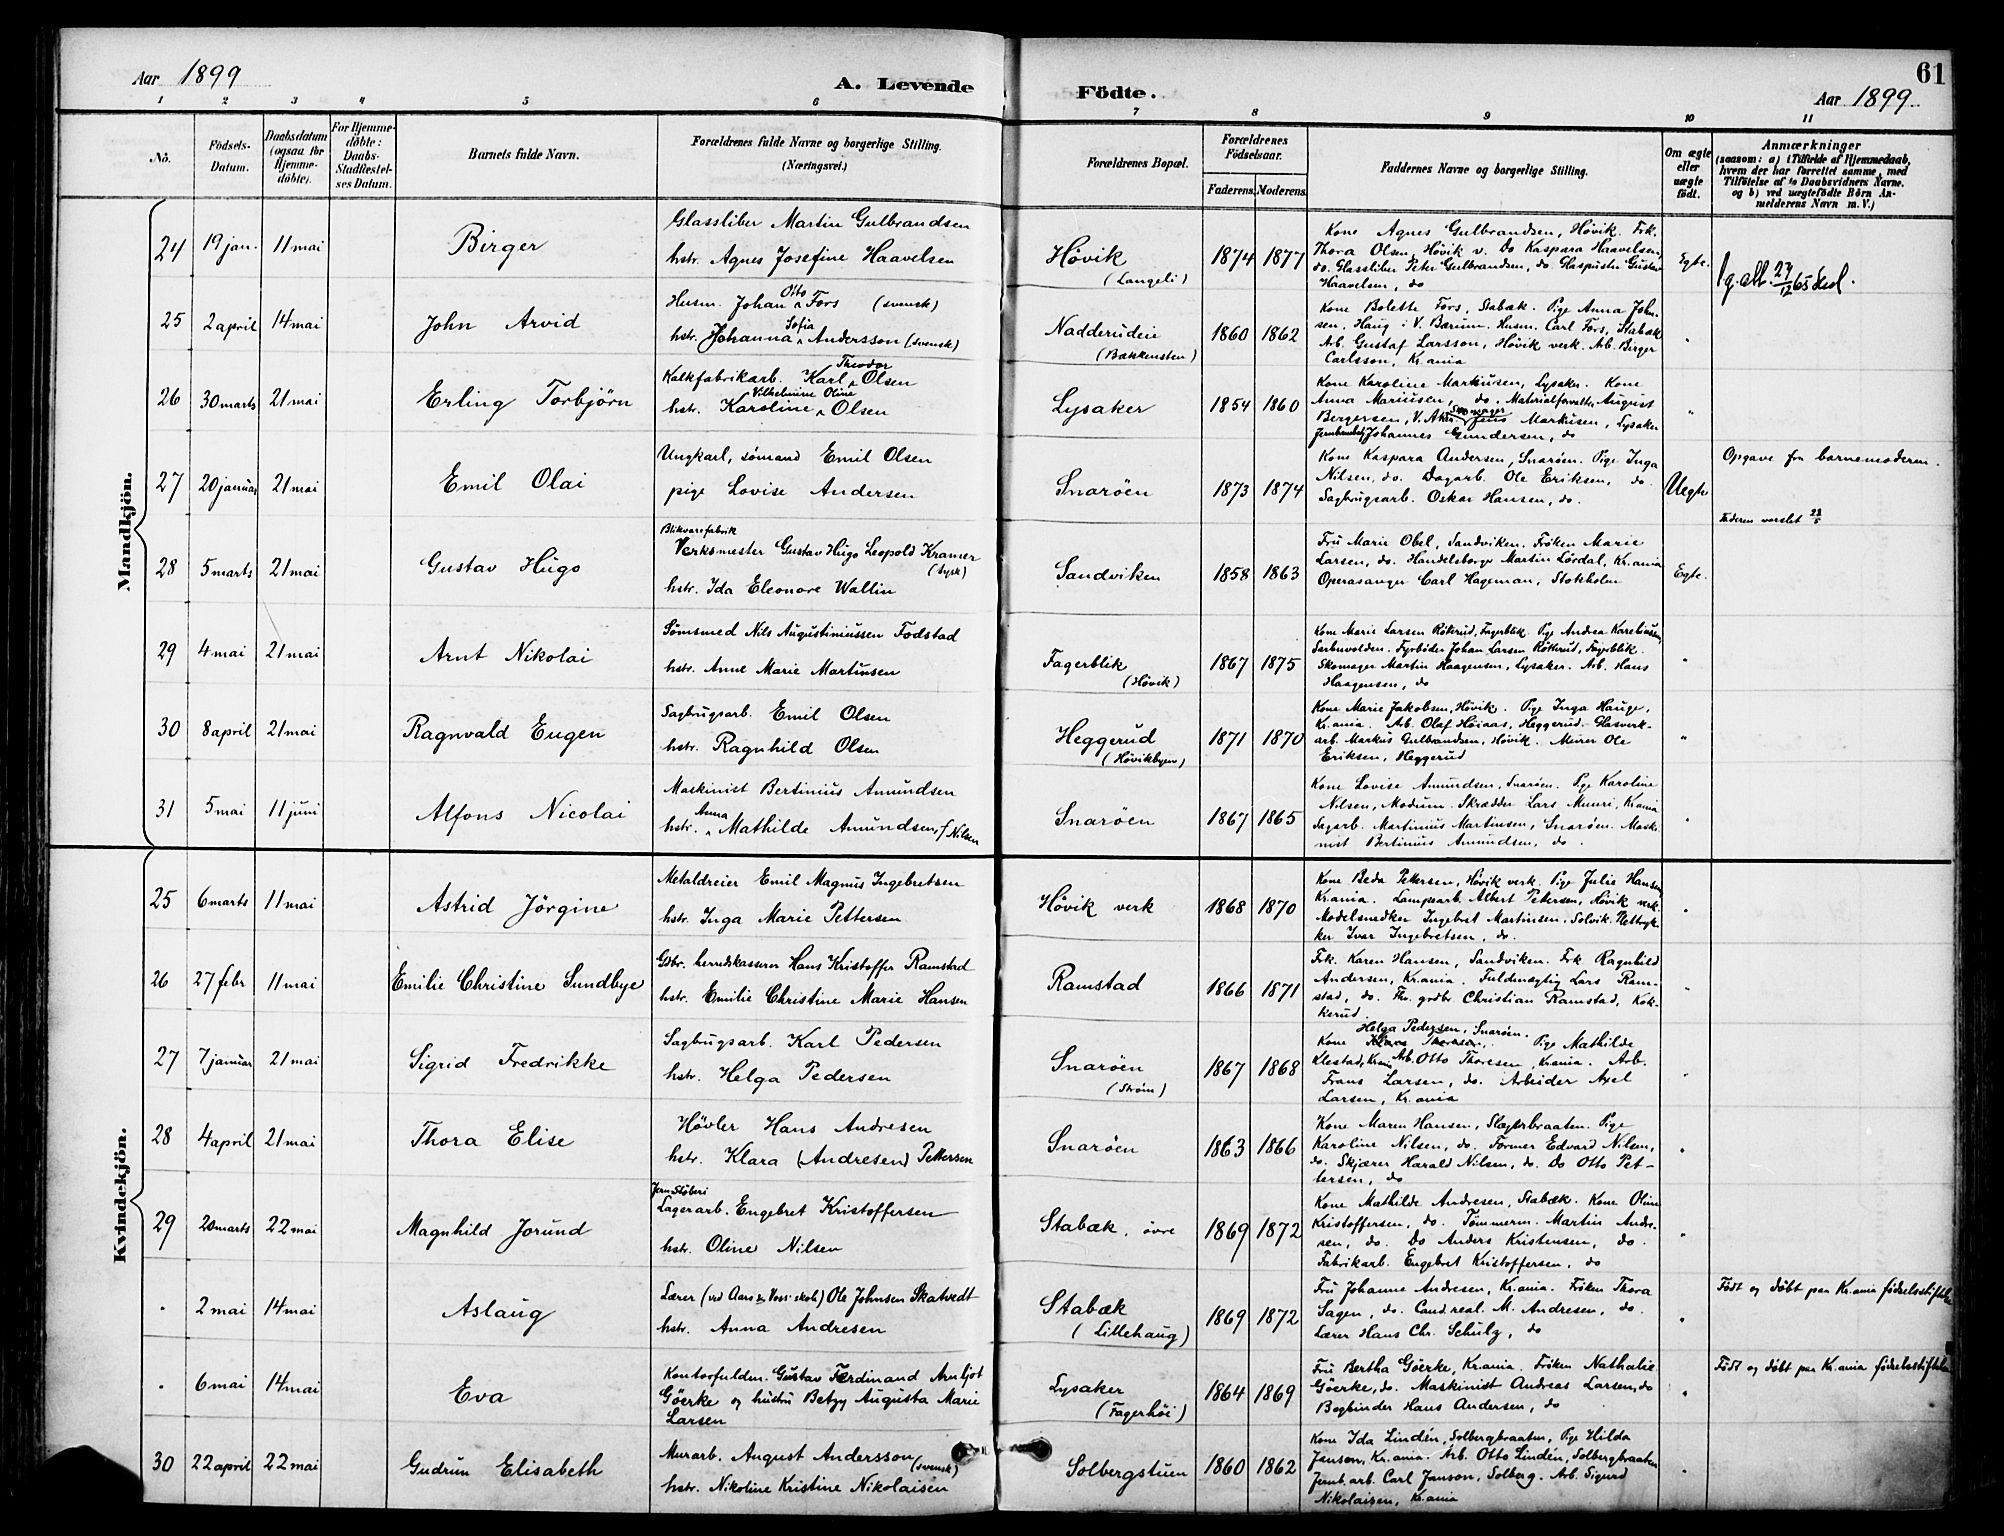 Aar 1899
A. Levende Födte.
61
Aar 1899
1 2 3 4 5 6 7 8 9 10 11
No.
Födsels-Datum.
Daabsdatum (ogsaa for Hjemme-döbte).
For Hjemme-döbte: Daabs-Stadfæstel-ses Datum.
Barnets fulde Navn.
Forældrenes fulde Navne og borgerlige Stilling. (Næringsvei.)
Forældrenes Bopæl.
Forældrenes Födselsaar.
Faderens. Moderens.
Faddernes Navne og borgerlige Stilling.
Om ægte eller uægte födt.
Anmærkninger
(saasom: a) i Tilfælde af Hjemmedaab,
hvem der har forrettet samme, med
Tilföielse af to Daabsvidners Navne.
og b) ved uægtefödte Börn An-
melderens Navn m. V.)
Mandkjön.
24 19 jan. 11 mai Birger
Glassliber Martin Gulbrandsen
hstr. Agnes Josefine Haavelsen
Høvik (Langeli) 1874 1877
Kone Agnes Gulbrandsen, Høvik. Frk.
Thora Olsen, Høvik v. Do Kaspara Haavelsen,
do. Glassliber Peter Gulbrandsen, do. Glaspuster Gustav
Haavelsen, do
Egte.
25 2 april 14 mai John Arvid
Husm. Johan Otto Fors (svensk)
hstr. Johanna Sofia Andersson (svensk)
Nadderudeie (Bækkensten) 1860 1862
Kone Bolette Fors, Stabæk. Pige Anna John-
sen, Haug i V. Bærum. Husm. Carl Fors, Stabæk
Arb. Gustaf Larsson, Høvik verk. Arb. Birger
Carlsson, Kr.ania
"
26 30 marts 21 mai Erling Torbjörn
Kalkfabrikarb. Karl Theodor Olsen
hstr. Karoline Vilhelmine Oline Olsen
Lysaker 1854 1860
Kone Karoline Markusen, Lysaker. Kone
Anna Mariusen, do. Materialforvalter August
Bergersen, V. Aker. Jens Markusen, Lysaker
Johannes Gundersen, do
"
27 20 januar 21 mai Emil Olai
Ungkarl, sömand Emil Olsen
pige Lovise Andersen
Snaröen 1873 1874
Kone Kaspara Andersen, Snaröen. Pige Inga
Nilsen, do. Dagarb. Ole Eriksen, do.
Sagbrugsarb. Oskar Hansen, do.
Uegte
Opgave fra barnemoderen.
Faderen varslet 23/5
28 5 marts 21 mai Gustav Hugo
Blikvarefabrik
Verksmester Gustav Hugo Leopold Kramer (tysk)
hstr. Ida Eleonore Wallin
Sandviken 1858 1863
Fru Marie Obel, Sandviken. Fröken Marie
Larsen, do. Handelsborger Martin Lördal, Kr.ania
Operasanger Carl Hageman, Stokholm
Egte.
29 4 mai 21 mai Arnt Nikolai
Sömsmed Nils Augustiniussen Fodstad
hstr. Anne Marie Martinsen
Fagerblik (Høvik) 1867 1875
Kone Marie Larsen Rötterud, Fagerblik. Pige Andrea Kareliussen,
Sarbuvolden. Fyrböder Johan Larsen Rötterud, Fagerblik.
Skomager Martin Haagensen, Lysaker. Arb. Hans
Haagensen, do
"
30 8 april 21 mai Ragnvald Eugen
Sagbrugsarb. Emil Olsen
hstr. Ragnhild Olsen
Heggerud (Høvikbyen) 1871 1870
Kone Marie Jakobsen, Høvik. Pige Inga Hauge,
Kr.ania. Arb. Olaf Höiaas, Heggerud. Glasverk-
arb. Markus Gulbrandsen, Høvik. Murer Ole
Eriksen, Heggerud
"
31 5 mai 11 juni Alfons Nicolai
Maskinist Bertinius Amundsen
hstr. Anna Mathilde Amundsen, f Nilsen
Snaröen 1867 1865
Kone Lovise Amundsen, Snaröen. Pige Karoline
Nilsen, Modum. Skrædder Lars Munri, Kr.ania
Sagarb. Martinius Martinsen, Snaröen. Maski-
nist Bertinius Amundsen, do.
"
Kvindekjön.
25 6 marts 11 mai Astrid Jörgine
Metaldreier Emil Magnus Ingebretsen
hstr. Inga Marie Pettersen
Høvik verk 1868 1870
Kone Beda Pettersen, Høvik verk. Pige Julie Hansen
Kr.ania. Lampearb. Albert Petersen, Høvik verk.
Modelsnedker Ingebret Martinsen, Solvik.
Ivar Ingebretsen, do.
"
26 27 febr 11 mai Emilie Christine Sundbye
Gbr. herredskasserer Hans Kristoffer Ramstad
hstr. Emilie Christine Marie Hansen
Ramstad 1866 1871
Frk. Karen Hansen, Sandviken. Frk Ragnhild
Andersen, Kr.ania. Fuldmægtig Lars Ram-
stad, do. Fhv. grdbr Christian Ramstad, Kok-
kerud
"
27 7 januar 21 mai Sigrid Fredrikke
Sagbrugsarb. Karl Pedersen
hstr. Helga Pedersen
Snaröen (Ström) 1867 1868
Helga Pedersen, Snaröen.
Kone Pige Mathilde
Klestad, Krania Arb. Otto Thoresen, Kr.ania. Arb.
Frans Larsen, do. Arbeider Axel
Larsen, Kr.ania
"
28 4 april 21 mai Thora Elise
Hövler Hans Andresen
hstr. Klara (Andresen) Pettersen
Snaröen 1863 1866
Kone Maren Hansen, Slagterbraaten. Pige
Karoline Nilsen, do. Former Edvard Nilsen,
do. Skjærer Harald Nilsen, do. Do Otto Pet-
tersen, do
"
29 20 marts 22 mai Magnhild Jorund
Jernstöberi
Lagerarb. Engebret Kristoffersen
hstr. Oline Nilsen
Stabæk, övre 1869 1872
Kone Mathilde Andresen, Stabæk. Kone Oline
Kristoffersen, do. Tömmerm. Martin Andre-
sen, do. Do Anders Kristensen, do.
Fabrikarb. Engebret Kristoffersen, do
"
" 2 mai 14 mai Aslaug
Lærer (ved Aars & Voss' skole) Ole Johnsen Skatvedt
hstr. Anna Andresen
Stabæk (Lillehaug) 1869 1872
Fru Johanne Andresen, Kr.ania. Fröken Thora
Sagen, do. Cand. real. M. Andresen, do.
Lærer Hans Chr. Schulz, do
"
Födt og döbt paa Kr.ania födselsstiftelse
" 6 mai 14 mai Eva
Kontorfuldm. Gustav Ferdinand Arnljot
Göerke og hustru Betzy Augusta Marie
Larsen
Lysaker (Fagerhöi) 1864 1869
Fru Bertha Göerke, Kr.ania. Fröken Nathalie
Göerke, do. Maskinist Andreas Larsen, do
Bogbinder Hans Andersen, do
"
Födt og döbt paa Kr.ania födselsstiftelse
30 22 april 22 mai Gudrun Elisabeth
Murarb. August Andersson (svensk)
hstr. Nikoline Kristine Nikolaisen
Solbergstuen 1860 1862
Kone Ida Lindén, Solbergbraaten, Pige Hilda
Janson, Kr.ania. Arb. Otto Lindén, Solbergbraaten
Jernb.arb. Carl Janson, Solberg. Arb. Sigurd
Nikolaisen, Kr.ania
"